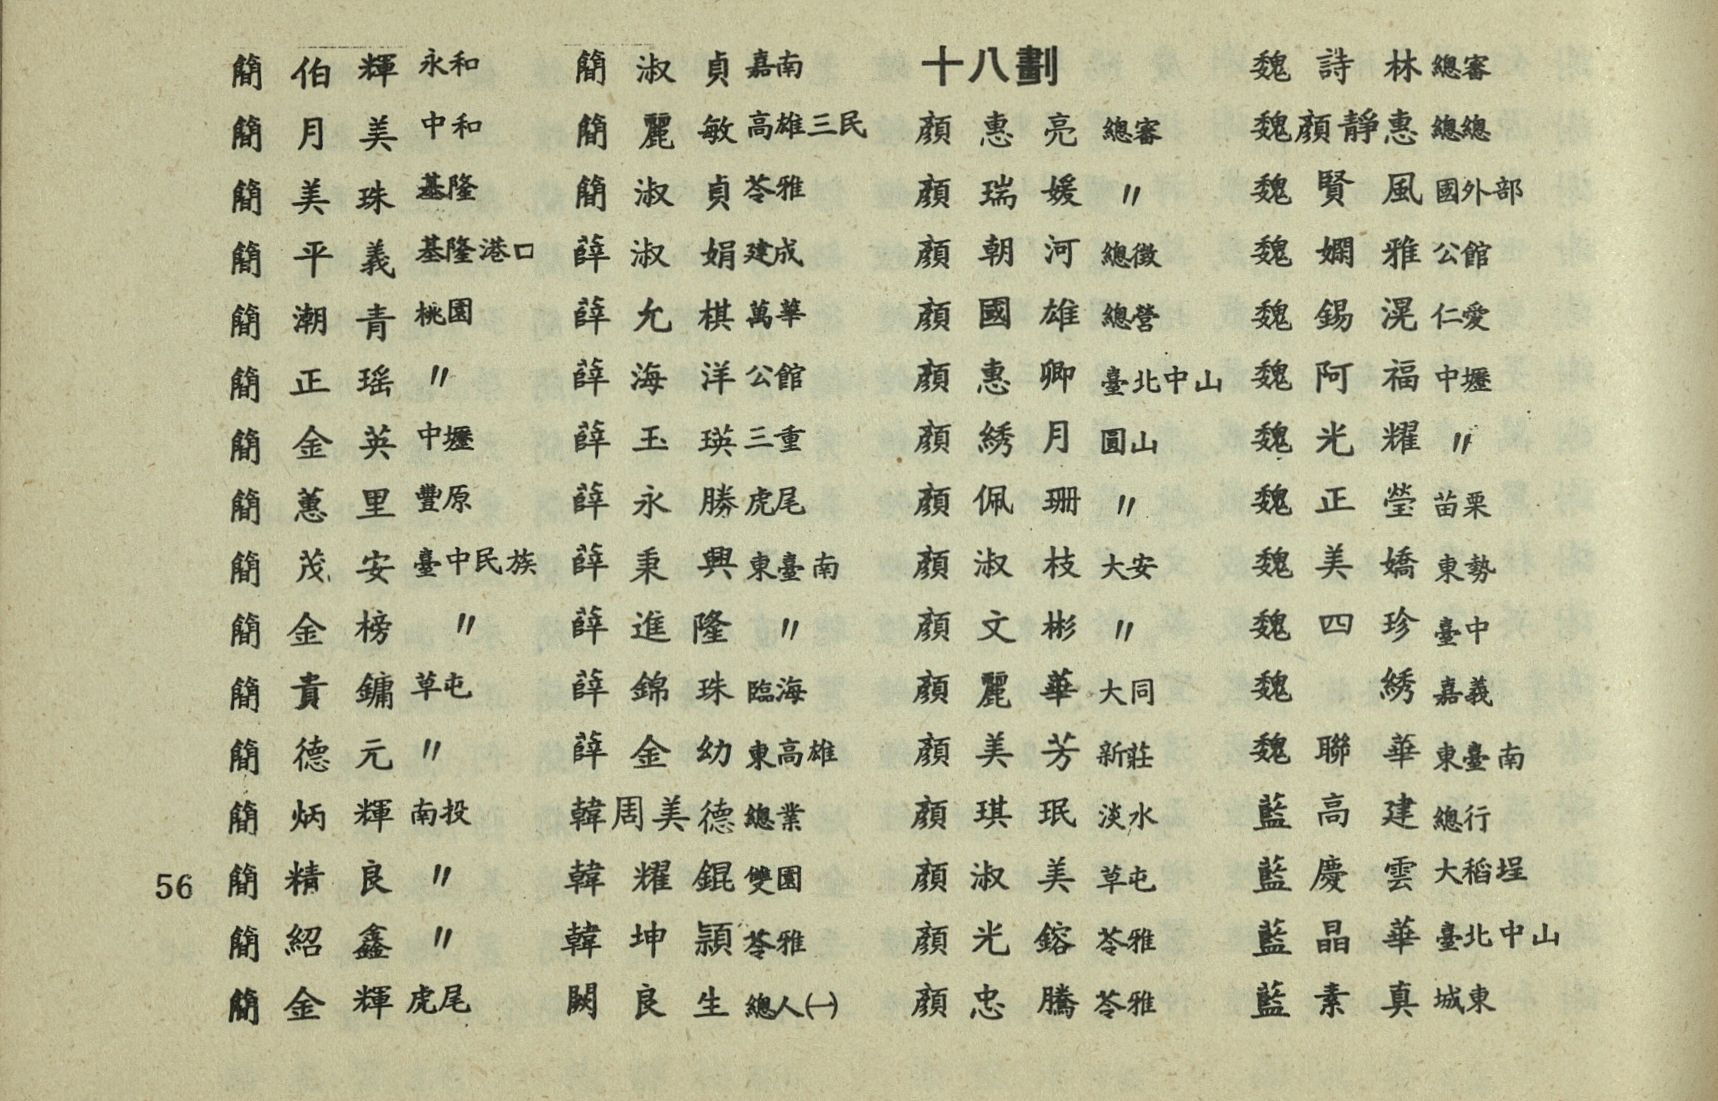 簡伯輝 永和
簡月美 中和
簡美珠 基隆
簡平義 基隆港口
簡潮青 桃園
簡正瑶 〃
簡金英 中壢
簡蕙里 豐原
簡茂安 臺中民族
簡金榜 〃
簡貴鏞 草屯
簡德元 〃
簡炳輝 南投
簡精良 〃
簡紹鑫 〃
簡金輝 虎尾
簡淑貞 嘉南
簡麗敏 高雄三民
簡淑貞 苓雅
薛淑娟 建成
薛允棋 萬華
薛海洋 公館
薛玉瑛 三重
薛永勝 虎尾
薛秉興 東臺南
薛進隆 〃
薛錦珠 臨海
薛金幼 東高雄
韓周美德 總業
韓耀錕 雙園
韓坤頴 苓雅
闕良生 總人㈠
十八劃
顏惠亮 總審
顏瑞媛 〃
顏朝河 總徵
顏國雄 總營
顏惠卿 臺北中山
顏綉月 圓山
顏佩珊 〃
顏淑枝 大安
顏文彬 〃
顏麗華 大同
顏美芳 新莊
顏琪珉 淡水
顏淑美 草屯
顏光鎔 苓雅
顏忠騰 苓雅
魏詩林 總審
魏顏靜惠 總總
魏賢風 國外部
魏嫻雅 公館
魏錫滉 仁愛
魏阿福 中壢
魏光耀 〃
魏正瑩 苗栗
魏美嬌 東勢
魏四珍 臺中
魏綉 嘉義
魏聯華 東臺南
藍高建 總行
藍慶雲 大稻埕
藍晶華 臺北中山
藍素真 城東
56